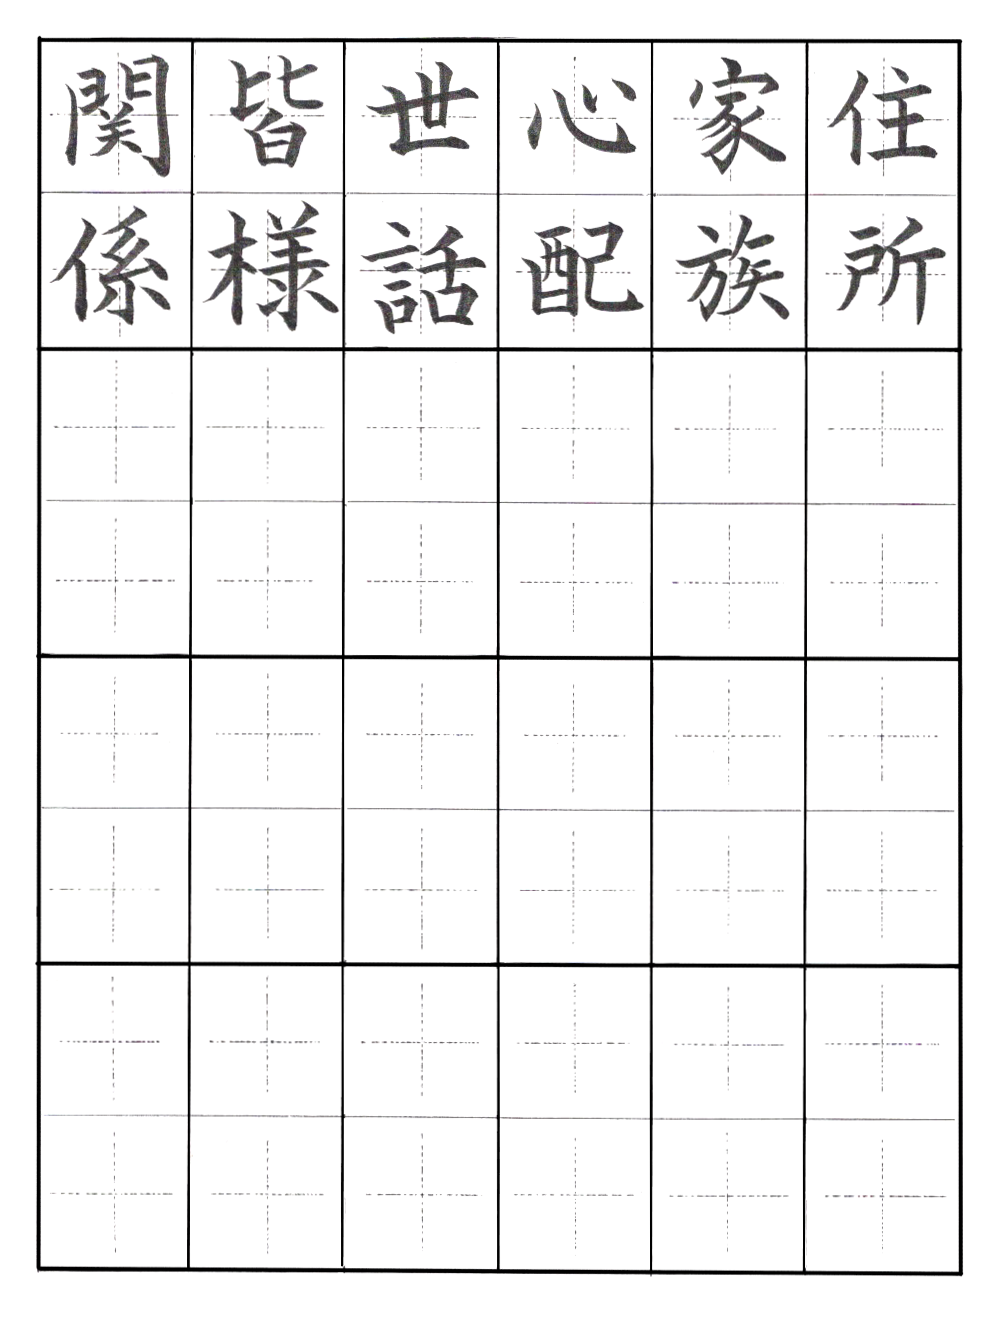 住所
家族
心配
世話
皆様
関係